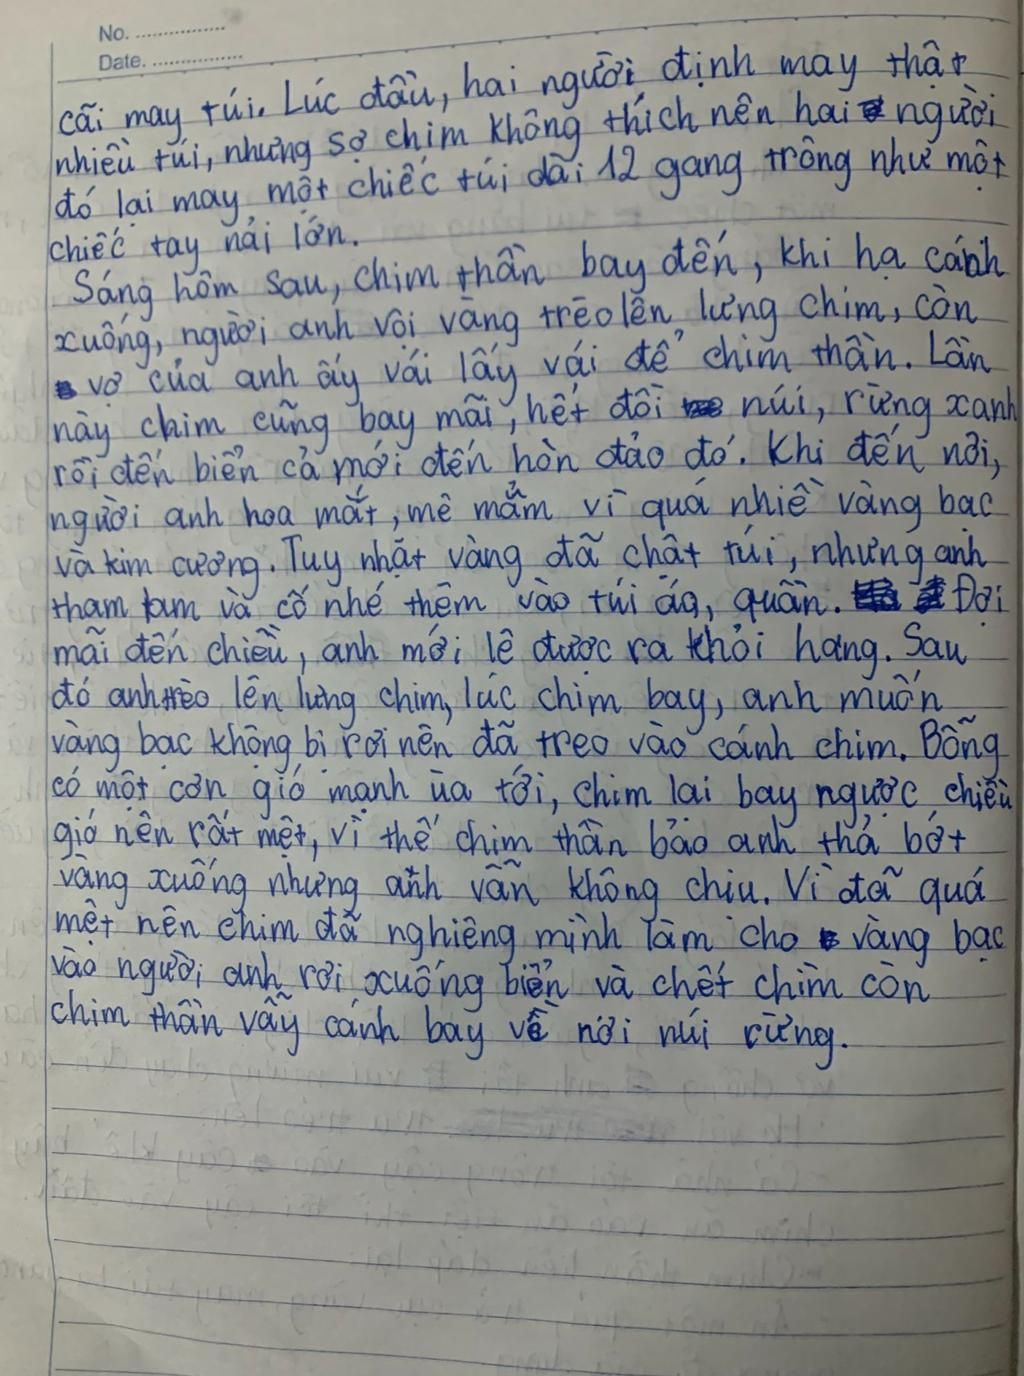 No. ................
Date. ................
cãi may túi. Lúc đầu, hai người định may thật
nhiều túi, nhưng sợ chim không thích nên hai người
đó lại may một chiếc túi dài 12 gang trông như một
chiếc tay nải lớn.
Sáng hôm sau, chim thần bay đến, khi hạ cánh
xuống, người anh vội vàng trèo lên lưng chim, còn
vợ của anh ấy vái lấy vái để chim thần. Lần
này chim cũng bay mãi, hết đồi núi, rừng xanh
rồi đến biển cả mới đến hòn đảo đó. Khi đến nơi,
người anh hoa mắt, mê mẩm vì quá nhiề vàng bạc
và kim cương. Tuy nhặt vàng đã chật túi, nhưng anh
tham lam và cố nhé thêm vào túi áo, quần. Đợi
mãi đến chiều, anh mới lê được ra khỏi hang. Sau
đó anh trèo lên lưng chim, lúc chim bay, anh muốn
vàng bạc không bị rơi nên đã treo vào cánh chim. Bỗng
có một cơn gió mạnh ùa tới, chim lại bay ngược chiều
gió nên rất mệt, vì thế chim thần bảo anh thả bớt
vàng xuống nhưng anh vẫn không chịu. Vì đã quá
mệt nên chim đã nghiêng mình làm cho vàng bạc
vào người anh rơi xuống biển và chết chìm còn
chim thần vẫy cánh bay về nơi núi rừng.